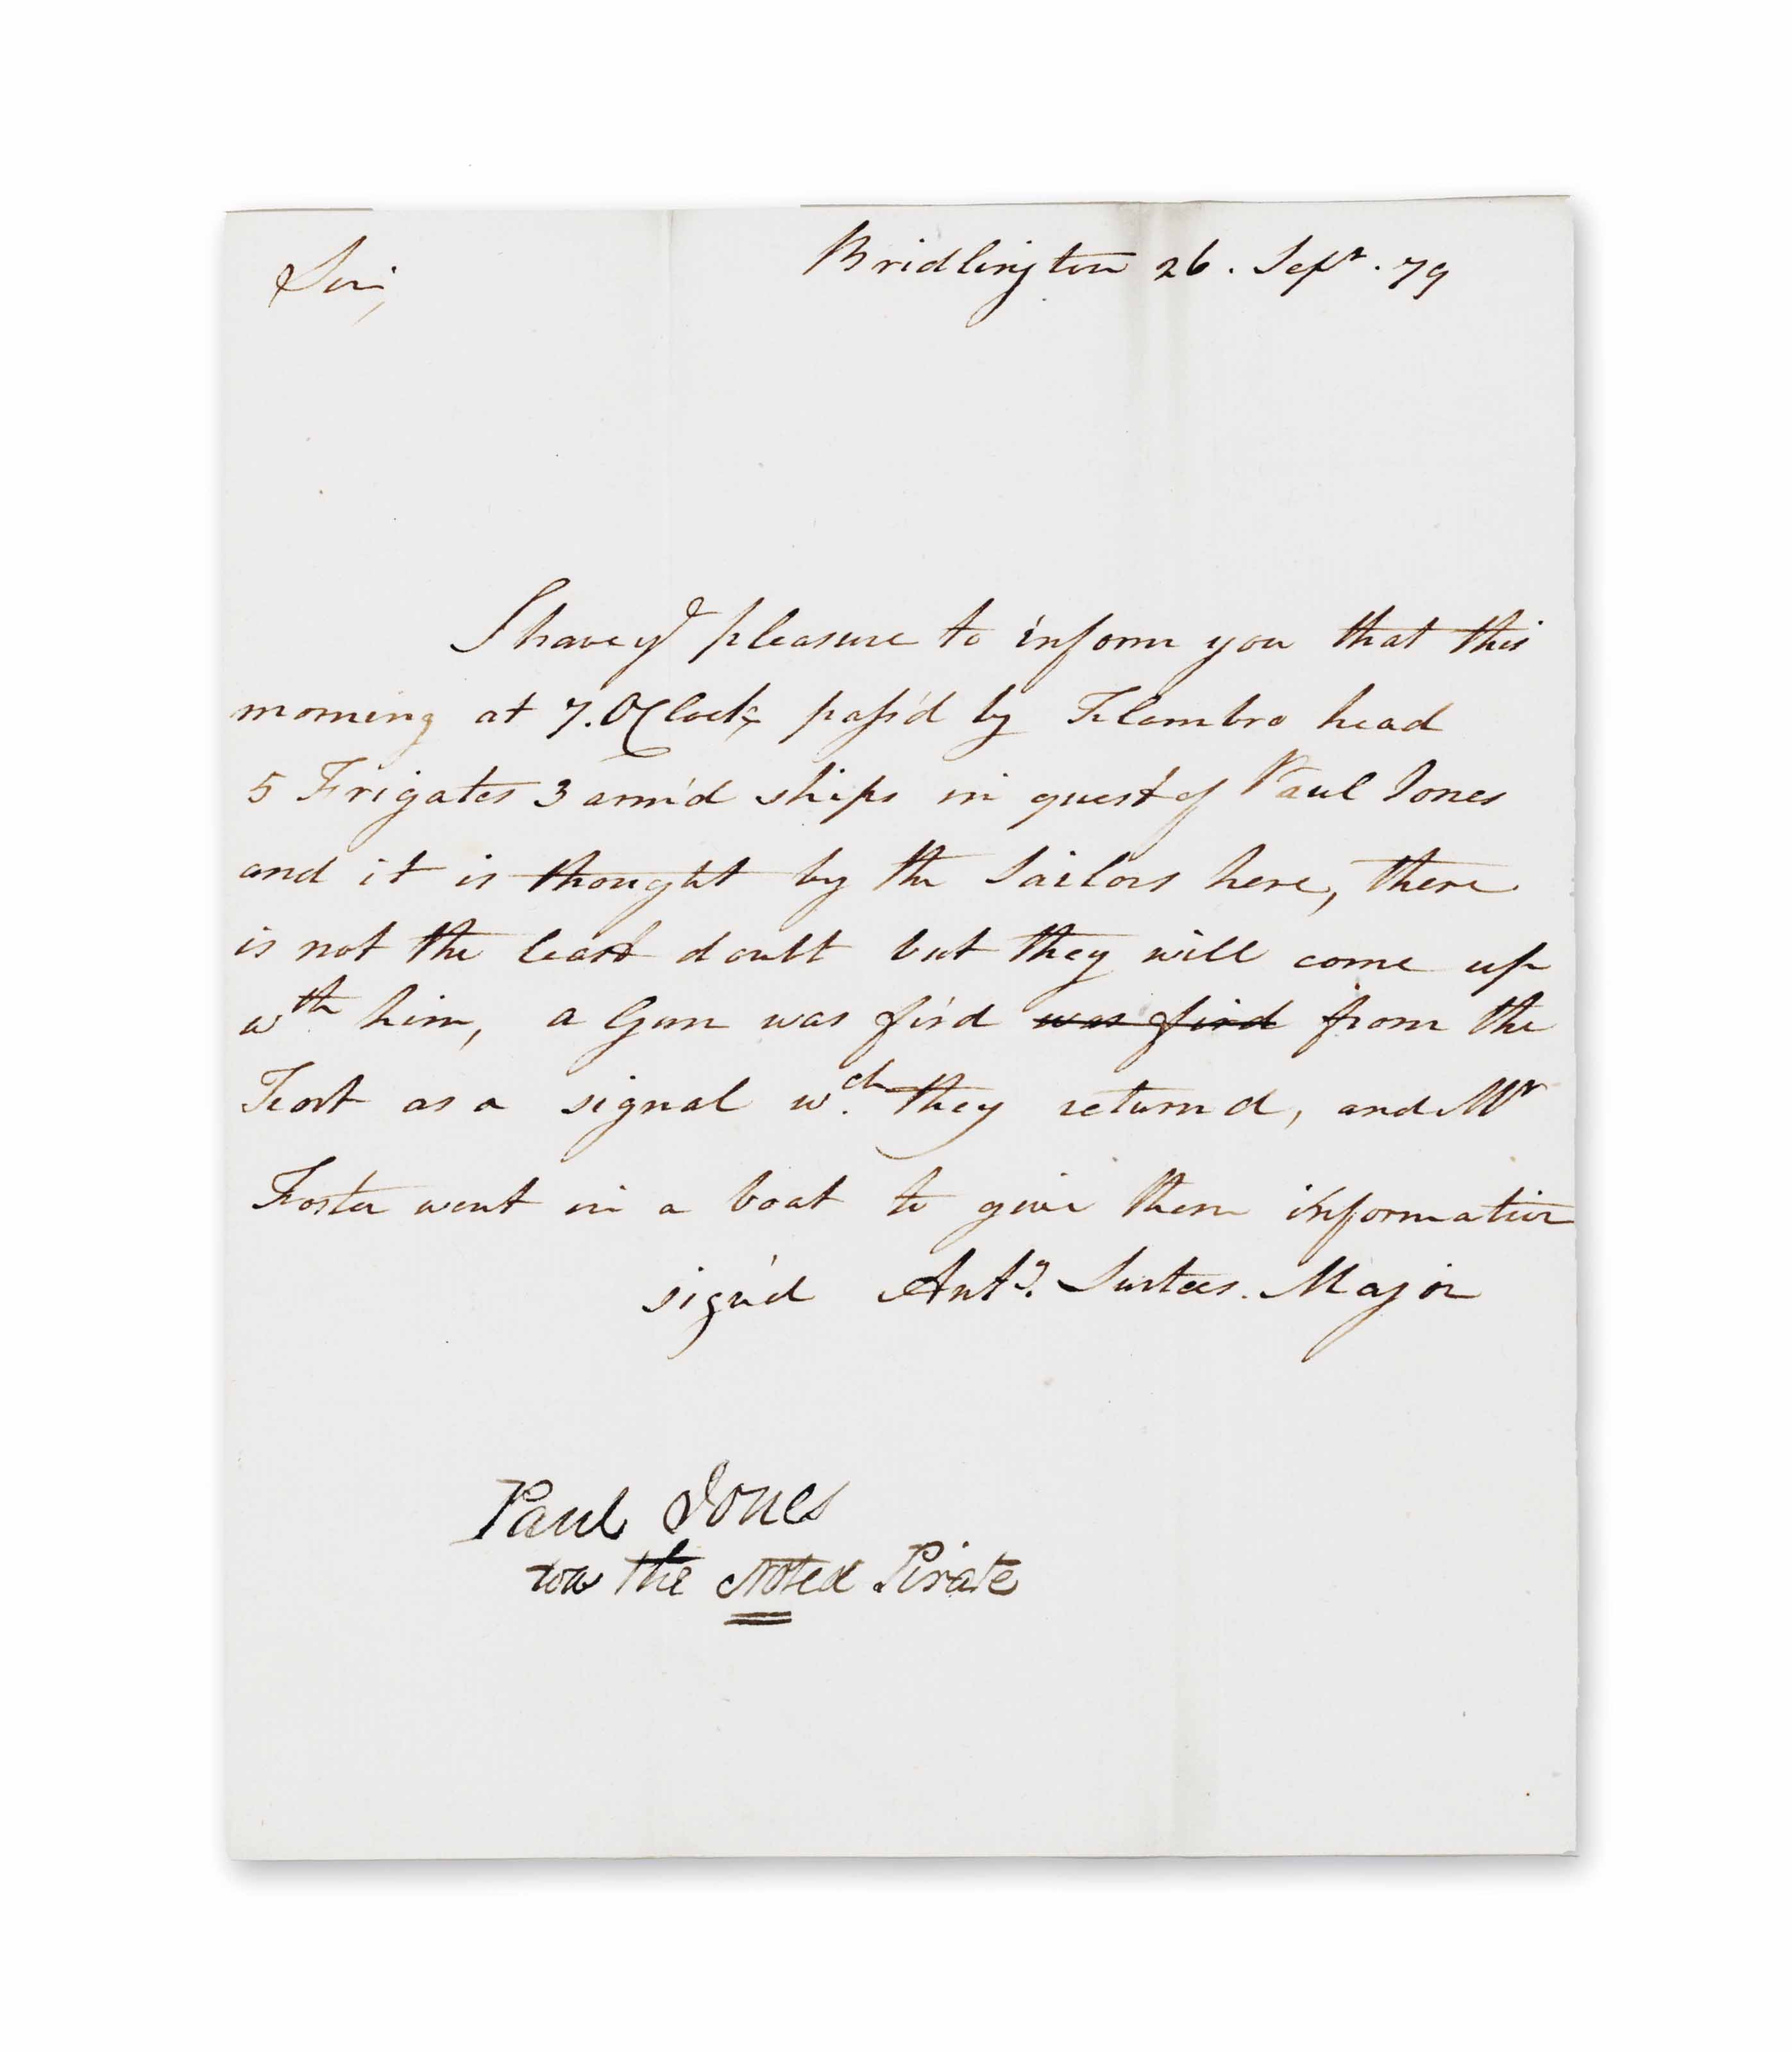 Sir,
Bridlington 26. Sepr. 79
I have ye pleasure to inform you that this
morning at 7. O'Clock pass'd by Flambro head
5 Frigates 3 arm'd ships in quest of Paul Jones
and it is thought by the Sailors here, there
is not the least doubt but they will come up
wth him, a Gun was fir'd was fird from the
Fort as a signal wch they return'd, and Mr
Foster went in a boat to give them information
sign'd Anty. Surtees. Major
Paul Jones
was the Noted Pirate